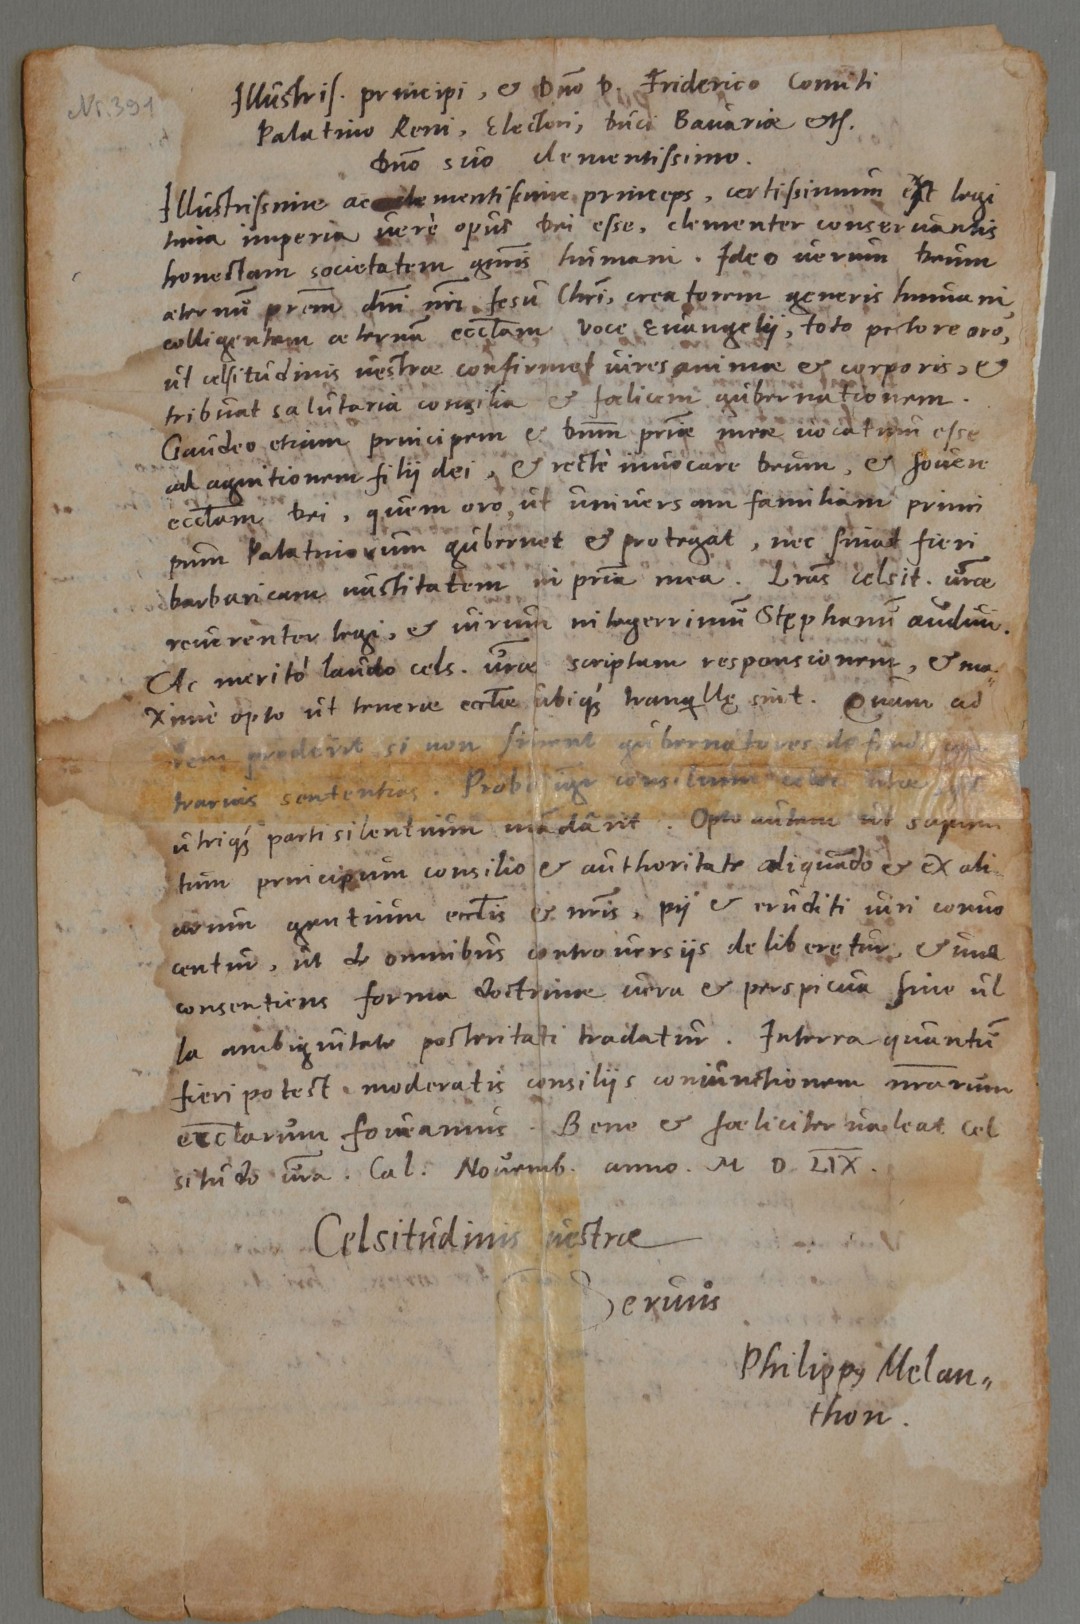 Nr. 391
Illustris. principi, & Dno D. Friderico Comiti
Palatino Reni, Electori, Duci Bavariæ etc.
Dno suo clementissimo.
Illustrissime ac clementissime princeps, certissimum est legi
tima imperia verè opus Dei esse, clementer conservantis
honestam societatem gnris humani. Ideo verum Deum
æternū prem dni nri Iesu Chri, creatorem generis humani,
colligentem æternā eccliam voce Evangelij, toto pectore oro,
ut celsitudinis vestræ confirmet vires animæ & corporis, &
tribuat salutaria consilia & fœlicem gubernationem.
Gaudeo etiam principem & Dnm priæ meæ vocatum esse
ad agnitionem filij dei, & rectè invocare Deum, & fovere
eccliam Dei, quem oro, ut universam familiam princi
pum Palatinorum gubernet & protegat, nec sinat fieri
barbaricam vastitatem in pria mea. Lras celsit. vræ
reverenter legi, & virum integerrimū Stephanū audivi.
Ac meritò laudo cels. vræ scriptam responsionem, & ma„
ximè opto ut teneræ eccliæ ubiq; tranquillę sint. Quam ad
rem proderit si non sinent gubernatores defendi
trarias sententias. Probo igr consilium
utriq; parti silentium mādarit. Opto autem ut sapien
tum principum consilio & authoritate aliquādo & ex ali
arum gentium ecclis & nris, pij & eruditi viri convo
centur, ut de omnibus controversijs deliberetur, & una
consentiens forma doctrinæ vera & perspicua sine ul
la ambiguitate posteritati tradatur. Interea quantū
fieri potest moderatis consilijs coniunctionem nrarum
eccliarum foveamus. Bene & fœliciter valeat cel
situdo vra. Cal. Novemb. anno. M D LIX.
Celsitudinis vestræ
Servus
Philippus Melan„
thon.